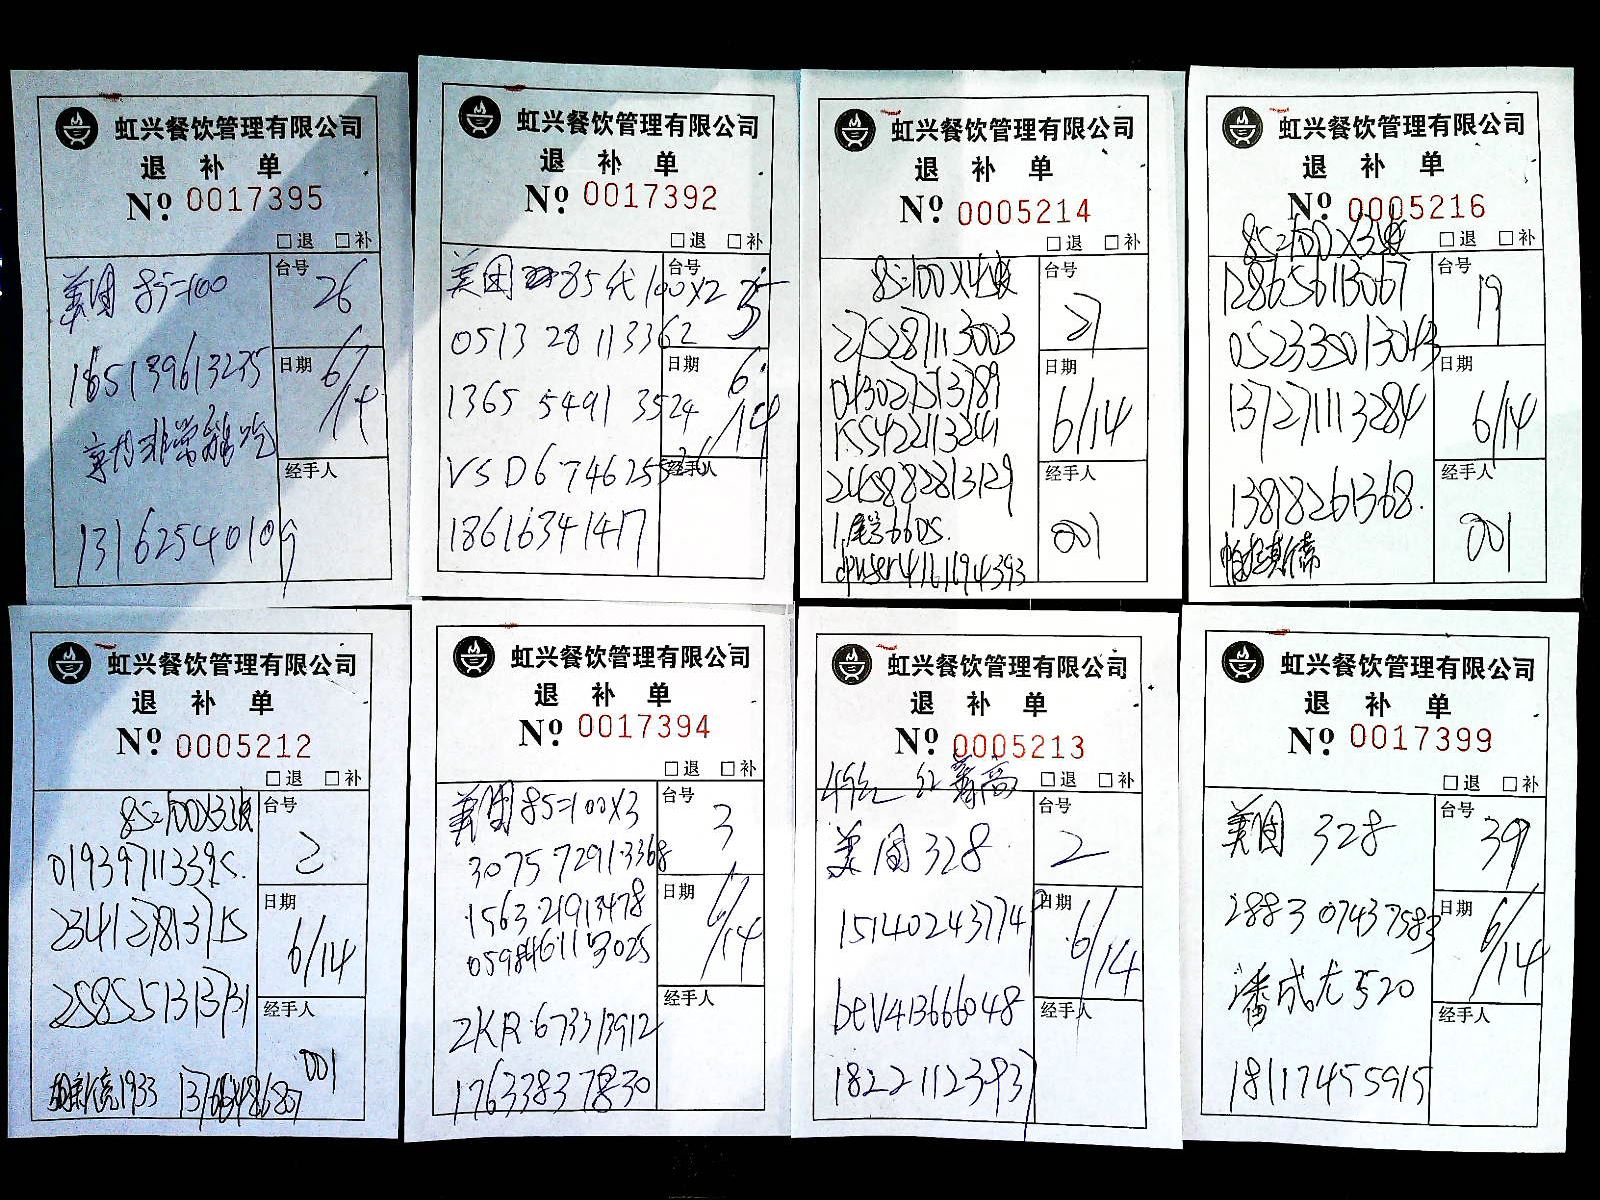 虹兴餐饮管理有限公司
退 补 单
No. 0017395
□退 □补
美团 85=100
台号
26
165139613235
日期
6/14
经手人
13162540109
虹兴餐饮管理有限公司
退 补 单
No. 0017392
□退 □补
美团 85代100X2
台号
0513 28 113362
日期
6/14
1365 5491 3524
经手人
18616341417
虹兴餐饮管理有限公司
退 补 单
No. 0005214
□退 □补
85=100X4
台号
27
275287113003
日期
6/14
043027513789
155422113241
245882813129
经手人
001
1.尾号6605.
dpuser41161694393
虹兴餐饮管理有限公司
退 补 单
No. 0005216
□退 □补
85=100X3
台号
19
128656113067
052333013043
日期
6/14
137271113284
经手人
001
13818261368.
虹兴餐饮管理有限公司
退 补 单
No. 0005212
□退 □补
85=100X3
台号
2
019397113395.
日期
6/14
234127813715
258551313731
经手人
001
虹兴餐饮管理有限公司
退 补 单
No. 0017394
□退 □补
美团85=100X3
台号
3
3075 72913368
日期
6/14
1563 21913478
059846113025
经手人
ZKR.673313912
17633837830
虹兴餐饮管理有限公司
退 补 单
No. 0005213
□退 □补
美团328
台号
2
151402437747
日期
6/14
经手人
beV413666048
18221123937
虹兴餐饮管理有限公司
退 补 单
No. 0017399
□退 □补
美团 328
台号
39
28830 7437583
日期
6/14
潘成龙520
经手人
18117455915